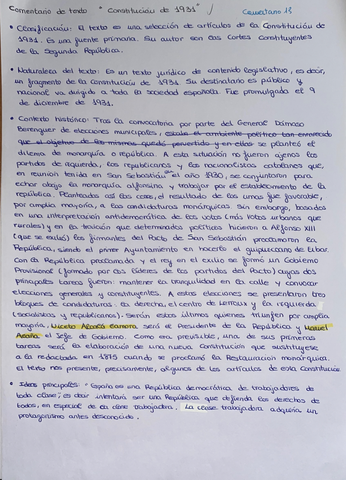 Comentario de texto "Constitución de 1931"
• Clasificación: El texto es una selección de artículos de la Constitución de
1931. Es una fuente primaria. Su autor son las Cortes Constituyentes
de la Segunda República.
• Naturaleza del texto: Es un texto jurídico de contenido legislativo, es decir,
un fragmento de la constitución de 1931. Su destinatario es público y
nacional va dirigido a toda la sociedad española. Fue promulgada el 9
de diciembre de 1931.
• Contexto histórico: Tras la convocatoria por parte del General Dámaso
Berenguer de elecciones municipales, estaba el ambiente político tan enrarecido
que el objetivo de las mismas quedó pervertido y en ellas se planteó el
dilema de monarquía o república. A esta situación no fueron ajenos los
partidos de izquierda, los republicanos y los nacionalistas catalanes que,
en reunión tenida en San Sebastián en el año 1930, se conjuntaron para
echar abajo la monarquía alfonsina y trabajar por el establecimiento de la
república. Planteadas así las cosas, el resultado de las urnas fue favorable,
por amplia mayoría, a las candidaturas monárquicas. Sin embargo, basados
en una interpretación antidemocrática de los votos (más votos urbanos que
rurales) y en la traición que determinados políticos hicieron a Alfonso XIII
(que se exilió) los firmantes del Pacto de San Sebastián proclamaron la
República, siendo el primer Ayuntamiento en hacerlo el guipuzcoano de Eibar.
Con la República proclamada y el rey en el exilio se formó un Gobierno
Provisional (formado por los líderes de los partidos del Pacto) cuyas dos
principales tareas fueron mantener la tranquilidad en la calle y convocar
elecciones generales y constituyentes. A estas elecciones se presentaron tres
bloques de candidaturas: la derecha, el centro de Lerroux y la izquierda
(socialistas y republicanos). Serán estos últimos quienes triunfen por amplia
mayoría. Niceto Alcalá Zamora será el Presidente de la República y Manuel
Azaña el Jefe de Gobierno. Como era previsible, una de sus primeras
tareas será la elaboración de una nueva Constitución que sustituyese
a la redactada en 1875 cuando se proclamó la Restauración monárquica.
El texto nos presenta, precisamente, algunos de los artículos de esta Constitución
• Ideas principales: "España es una República democrática de trabajadores de
toda clase", es decir intentará ser una República que defienda los derechos de
todos, en especial de la clase trabajadora. La clase trabajadora adquiría un
protagonismo antes desconocido.